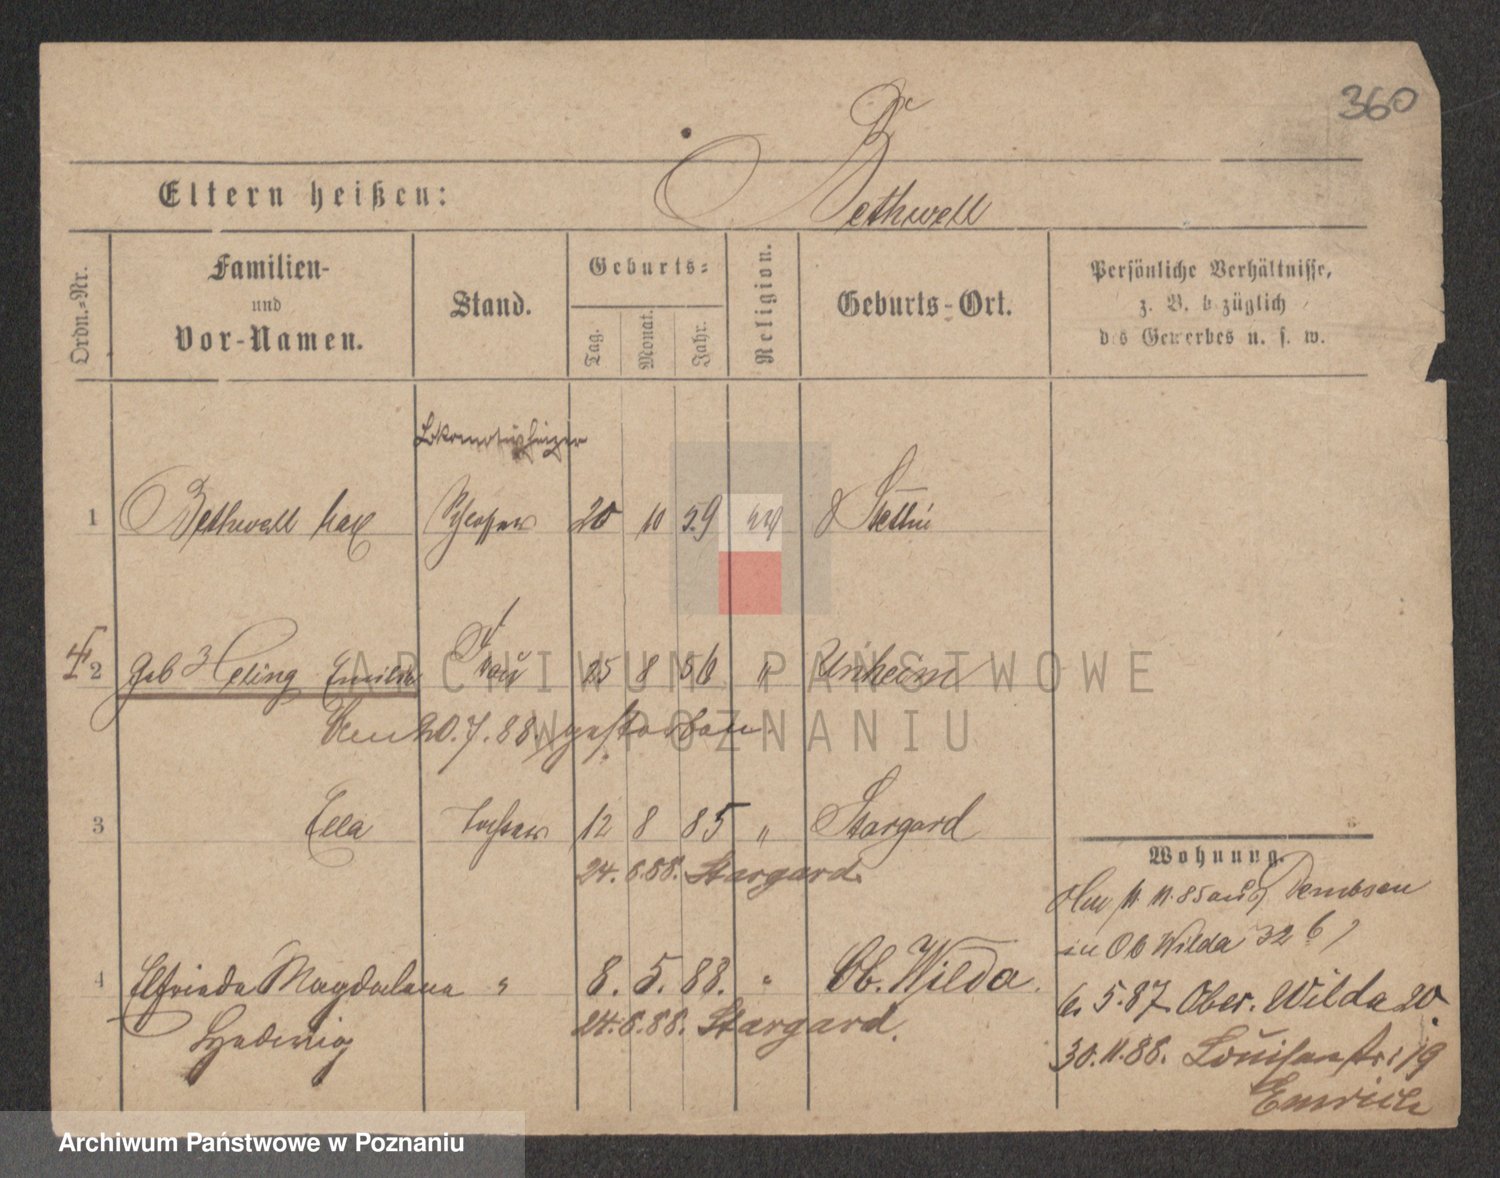 360
Eltern heißen:
Bethwell
Ordn.-Nr.
Familien-
und
Vor-Namen.
Stand.
Geburts-
Tag.
Monat.
Jahr.
Religion.
Geburts-Ort.
Persönliche Verhältnisse,
z. B. bezüglich
des Gewerbes u. s. w.
Lokomotivheizer
1 Bethwell Max Schlosser 20 10 59 ev Stettin
2 geb Heling Emilie Frau 25 8 56 " Unheim
Den 20.7.88. gestorben.
3 Ella Tochter 12 8 85 " Stargard
24.8.88. Stargard.
Wohnung.
11.11.85 aus Dembsen
in Ob Wilda 32 b
4 Elfriede Magdalena " 8. 5. 88. " Ob. Wilda.
Hedwig
24.8.88. Stargard.
5.87. Ober. Wilda 20.
30.11.88. Louisenstr: 19
Emrich
ARCHIWUM PAŃSTWOWE
W POZNANIU
Archiwum Państwowe w Poznaniu